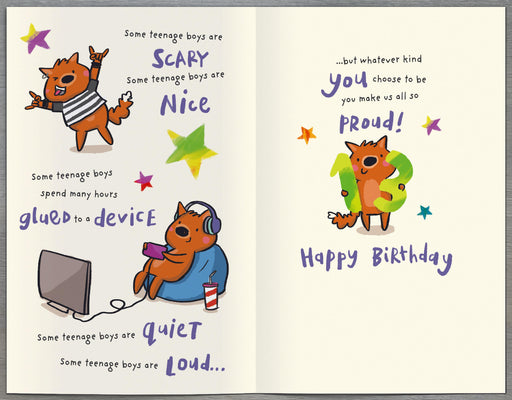 Some teenage boys are
SCARY
Some teenage boys are
Nice
Some teenage boys
spend many hours
glued to a device
Some teenage boys are quiet
Some teenage boys are Loud...
...but whatever kind
you choose to be
you make us all so
proud!
13
Happy Birthday